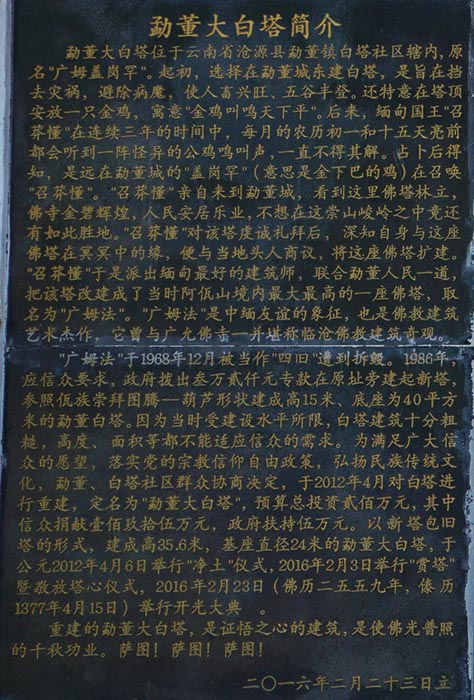 勐董大白塔简介
勐董大白塔位于云南省沧源县勐董镇白塔社区辖内,原
名"广姆盖岗罕"。起初,选择在勐董城东建白塔,是旨在挡
去灾祸,避除病魔,使人畜兴旺、五谷丰登。还特意在塔顶
安放一只金鸡,寓意"金鸡叫鸣天下平"。后来,缅甸国王"召
莽懂"在连续三年的时间中,每月的农历初一和十五天亮前
都会听到一阵怪异的公鸡鸣叫声,一直不得其解。占卜后得
知,是远在勐董城的"盖岗罕"(意思是金下巴的鸡)在召唤
"召莽懂"。"召莽懂"亲自来到勐董城,看到这里佛塔林立,
佛寺金碧辉煌,人民安居乐业,不想在这崇山峻岭之中竟还
有如此胜地。"召莽懂"对该塔虔诚礼拜后,深知自身与这座
佛塔在冥冥中的缘,便与当地头人商议,将这座佛塔扩建。
"召莽懂"于是派出缅甸最好的建筑师,联合勐董人民一道,
把该塔改建成了当时阿佤山境内最大最高的一座佛塔,取
名为"广姆法"。"广姆法"是中缅友谊的象征,也是佛教建筑
艺术杰作,它曾与广允佛寺一并堪称临沧佛教建筑奇观。
"广姆法"于1968年12月被当作"四旧"遭到拆毁。1986年,
应信众要求,政府拨出叁万贰仟元专款在原址旁建起新塔,
参照佤族崇拜图腾--葫芦形状建成高15米、底座为40平方
米的勐董白塔。因为当时受建设水平所限,白塔建筑十分粗
糙,高度、面积等都不能适应信众的需求。为满足广大信
众的愿望,落实党的宗教信仰自由政策,弘扬民族传统文
化,勐董、白塔社区群众协商决定,于2012年4月对白塔进
行重建,定名为"勐董大白塔",预算总投资贰佰万元,其中
信众捐献壹佰玖拾伍万元,政府扶持伍万元。以新塔包旧
塔的形式,建成高35.6米,基座直径24米的勐董大白塔,于
公元2012年4月6日举行"净土"仪式,2016年2月3日举行"赏塔"
暨敬放塔心仪式,2016年2月23日(佛历二五五九年,傣历
1377年4月15日)举行开光大典 。
重建的勐董大白塔,是证悟之心的建筑,是使佛光普照
的千秋功业。萨图!萨图!萨图!
二〇一六年二月二十三日立